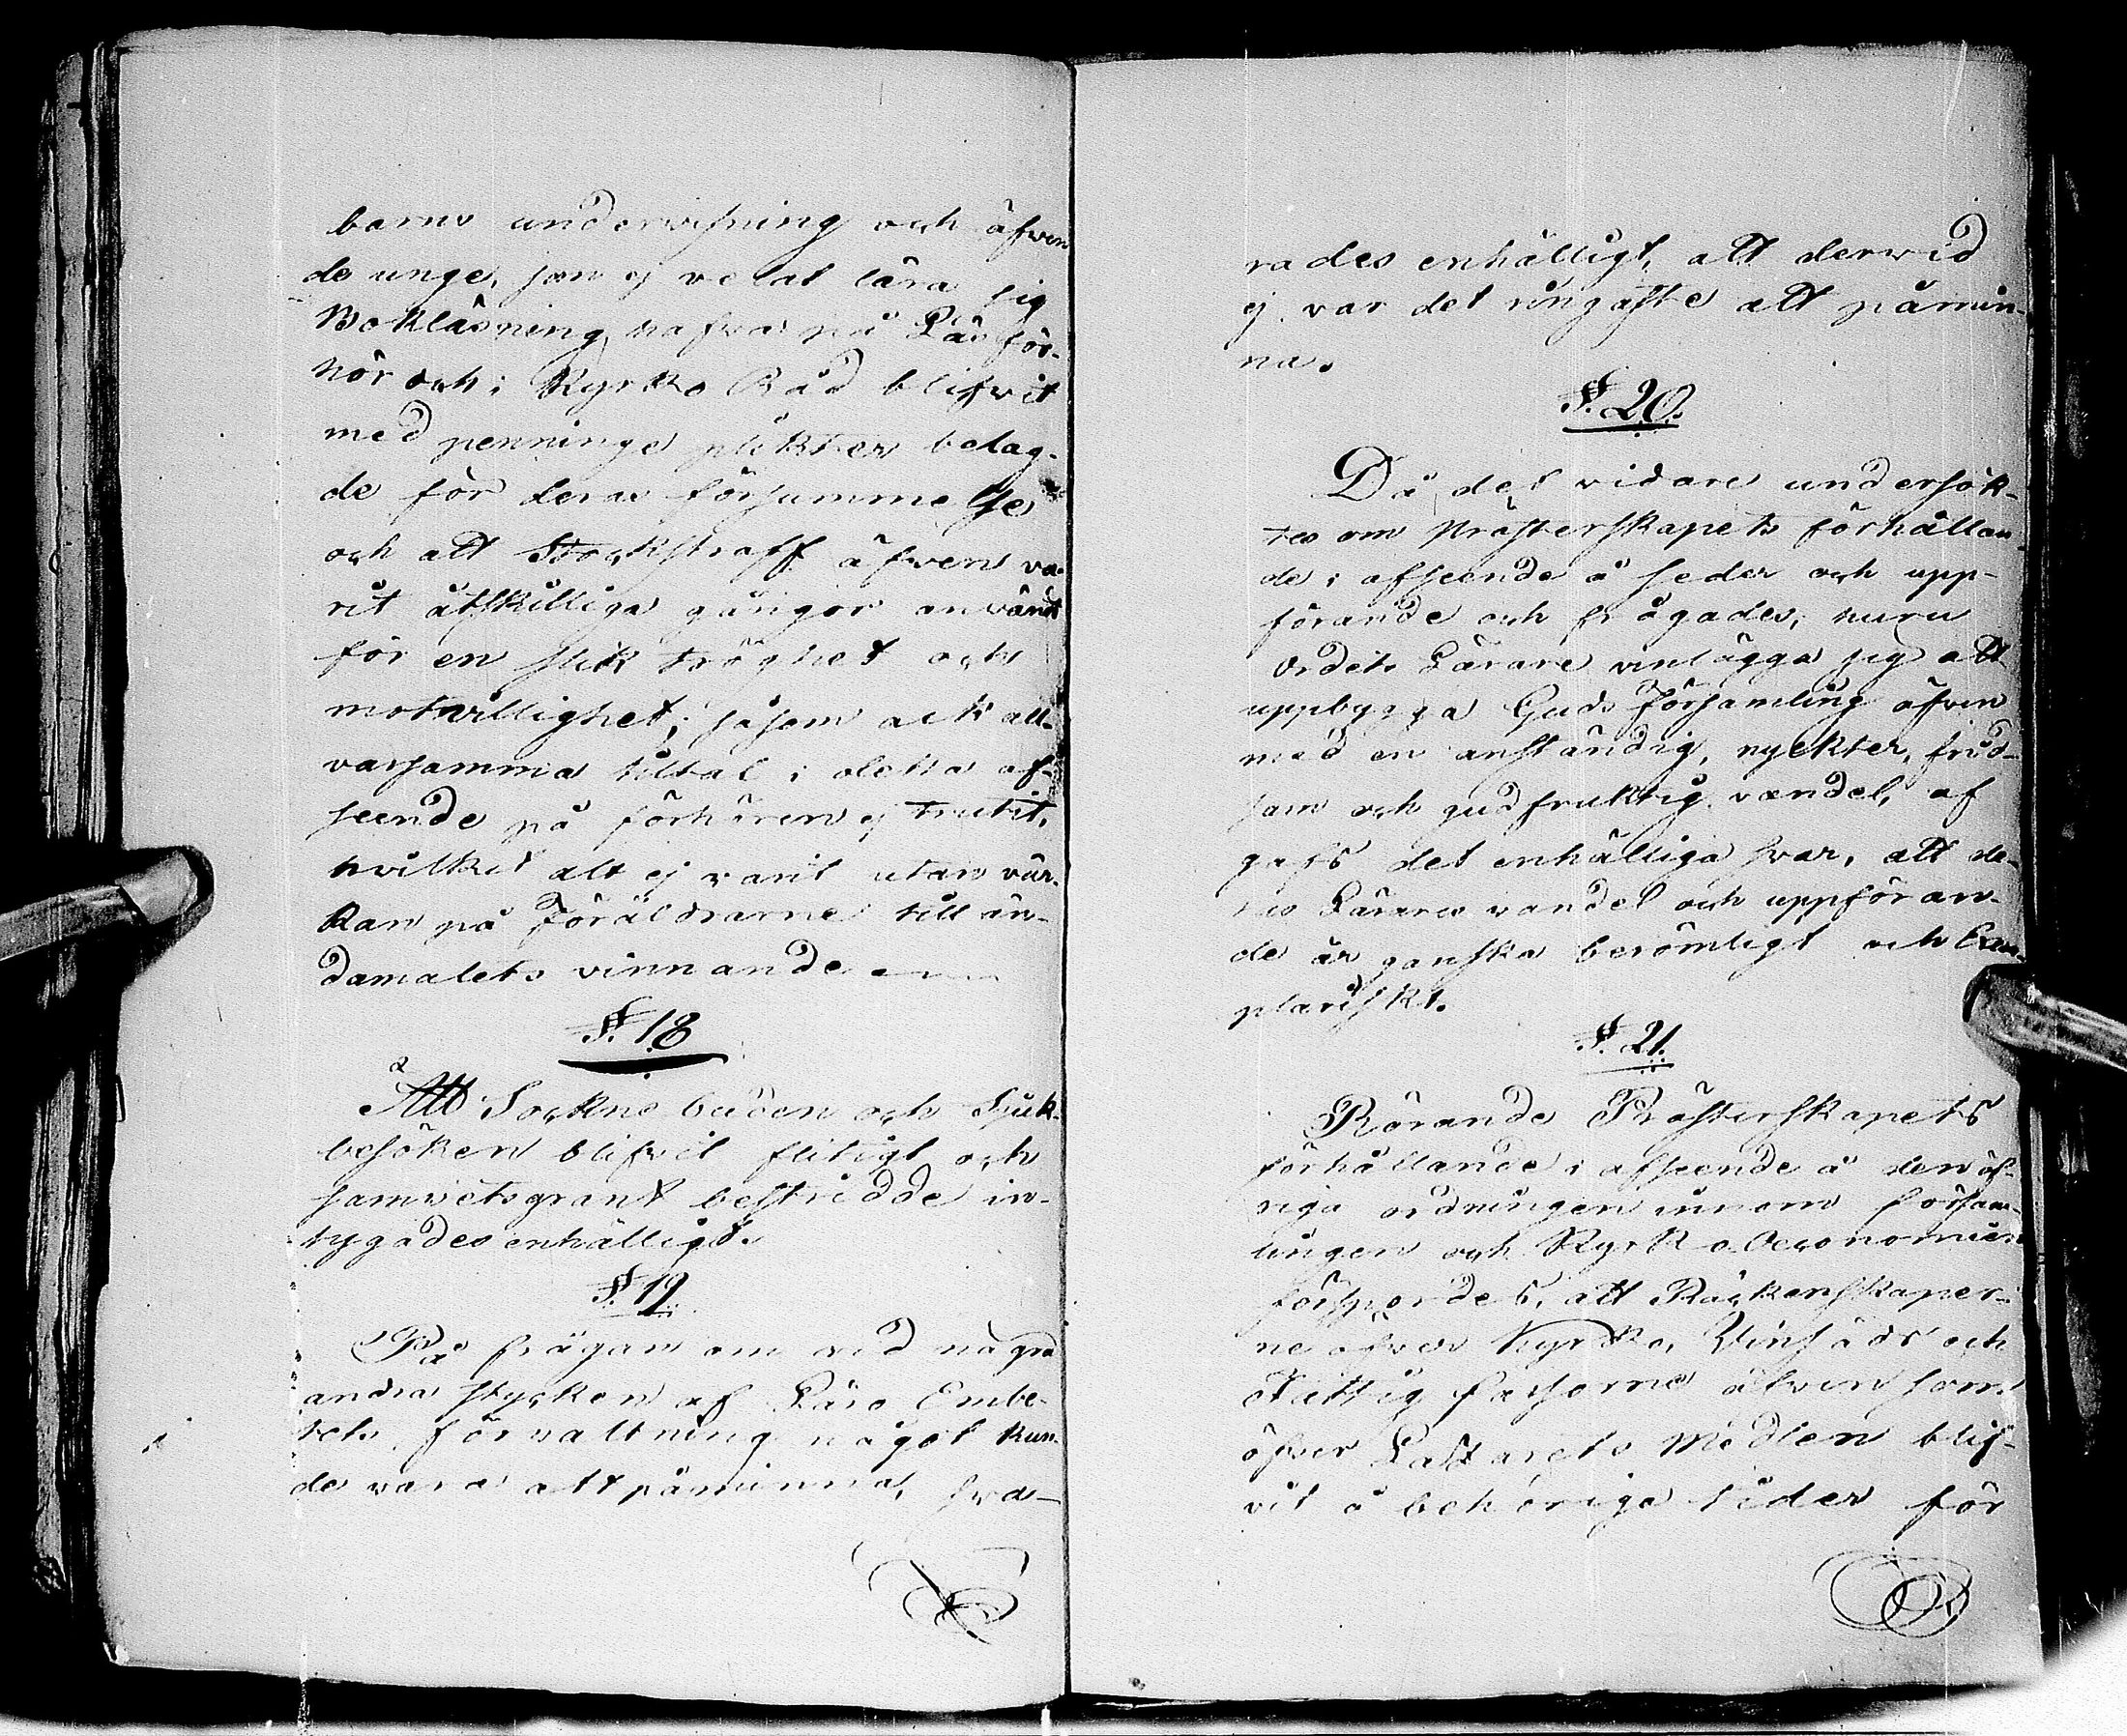 barns underwisning och äfwen
de unge, som ej velat lära sig
Bokläsning, hafva på Läsför-
hör och i Kyrko Råd blifvit
med penninge plikter belag-
de för deras försummelse
och att Stockstraff äfwen va-
rit åtskilliga gångor användt
för en slik tröghet och
motwillighet; såsom ock all-
varsamma tilltal i detta af-
seende på förhören ej trutit,
hvilket allt ej varit utan vär-
kan på Föräldrarne till än-
damålets vinnande
§. 18
Att Sockne buden och Sjuk-
besöken blifvit flitigt och
samvetsgrant bestridde in-
tygades enhälligt.
§. 19
På frågan om vid några
andra stycken af Läro Embe-
tets förvaltning något kun-
de vara att påminna, sva-
rades enhälligt, att derwid
ej var det ringaste att påmin-
na.
§. 20.
Då det vidare undersök-
tes om Prästerskapets förhållan-
de i afseende å seder och upp-
förande och frågades, huru
Ordets Lärare vinlägga sig att
uppbygga Guds Församling äfven
med en anständig, nyckter, frid-
sam och gudfruktig vandel, af
gafs det enhälliga svar, att de-
ras Lärares vandel och uppföran-
de är ganska berömligt och Exem-
plariskt.
§. 21.
Rörande Prästerskapets
förhållande i afseende å den öf-
riga ordningen innom försam-
lingen och Kyrko Oeconomien
försporde s, att Räkenskaper-
ne öfver Kyrko, Vinsäds och
Fattig Cassorne äfven som
öfver Lasarets Medlen blif-
vit å behöriga tider för